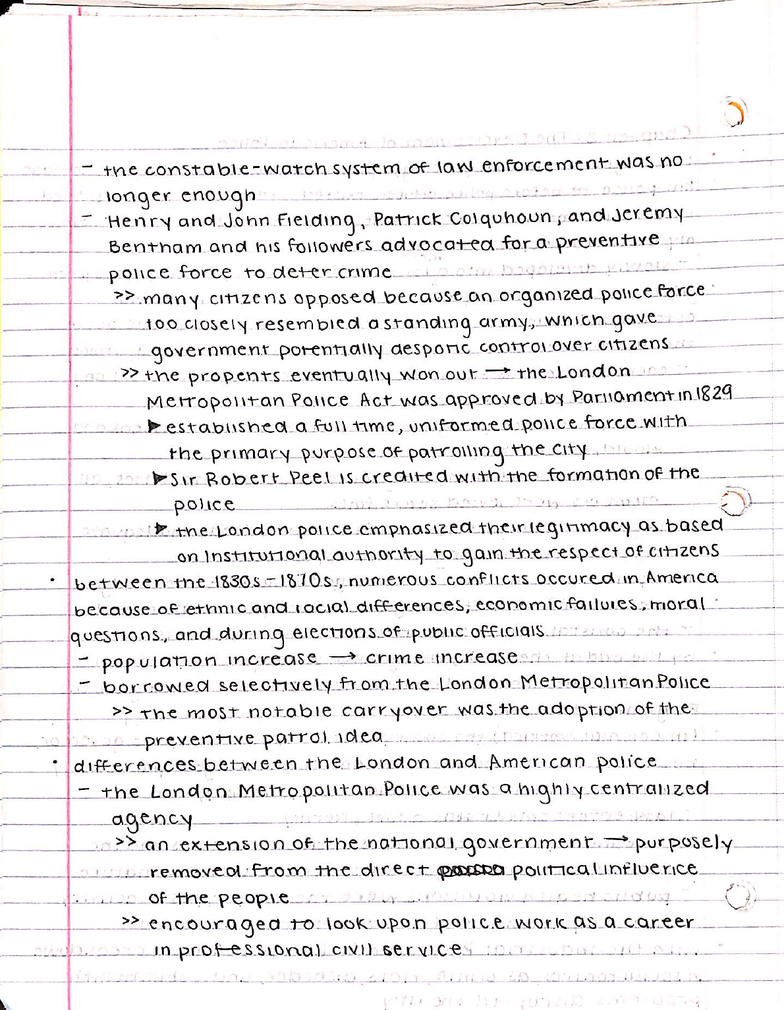 - the constable-watch system of law enforcement was no
longer enough
- Henry and John Fielding, Patrick Colquhoun, and Jeremy
Bentham and his followers advocated for a preventive
police force to deter crime
>> many citizens opposed because an organized police force
too closely resembled a standing army, which gave
government potentially despotic control over citizens
>> the propents eventually won out → the London
Metropolitan Police Act was approved by Parliament in 1829
▶ established a full time, uniformed police force with
the primary purpose of patrolling the city
▶ Sir Robert Peel is credited with the formation of the
police
▶ the London police emphasized their legitimacy as based
on institutional authority to gain the respect of citizens
• between the 1830s-1870s, numerous conflicts occured in America
because of ethnic and racial differences, economic failures, moral
questions, and during elections of public officials
- population increase → crime increase
- borrowed selectively from the London Metropolitan Police
>> the most notable carryover was the adoption of the
preventive patrol idea
• differences between the London and American police
- the London Metropolitan Police was a highly centralized
agency
>> an extension of the national government → purposely
removed from the direct political influence
of the people
>> encouraged to look upon police work as a career
in professional civil service